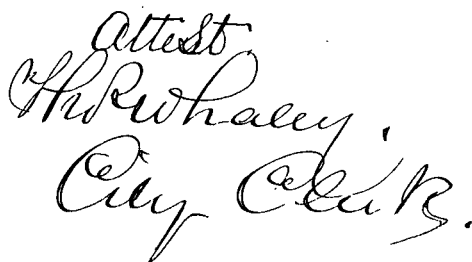 Attest
Whaley.
City Clerk.